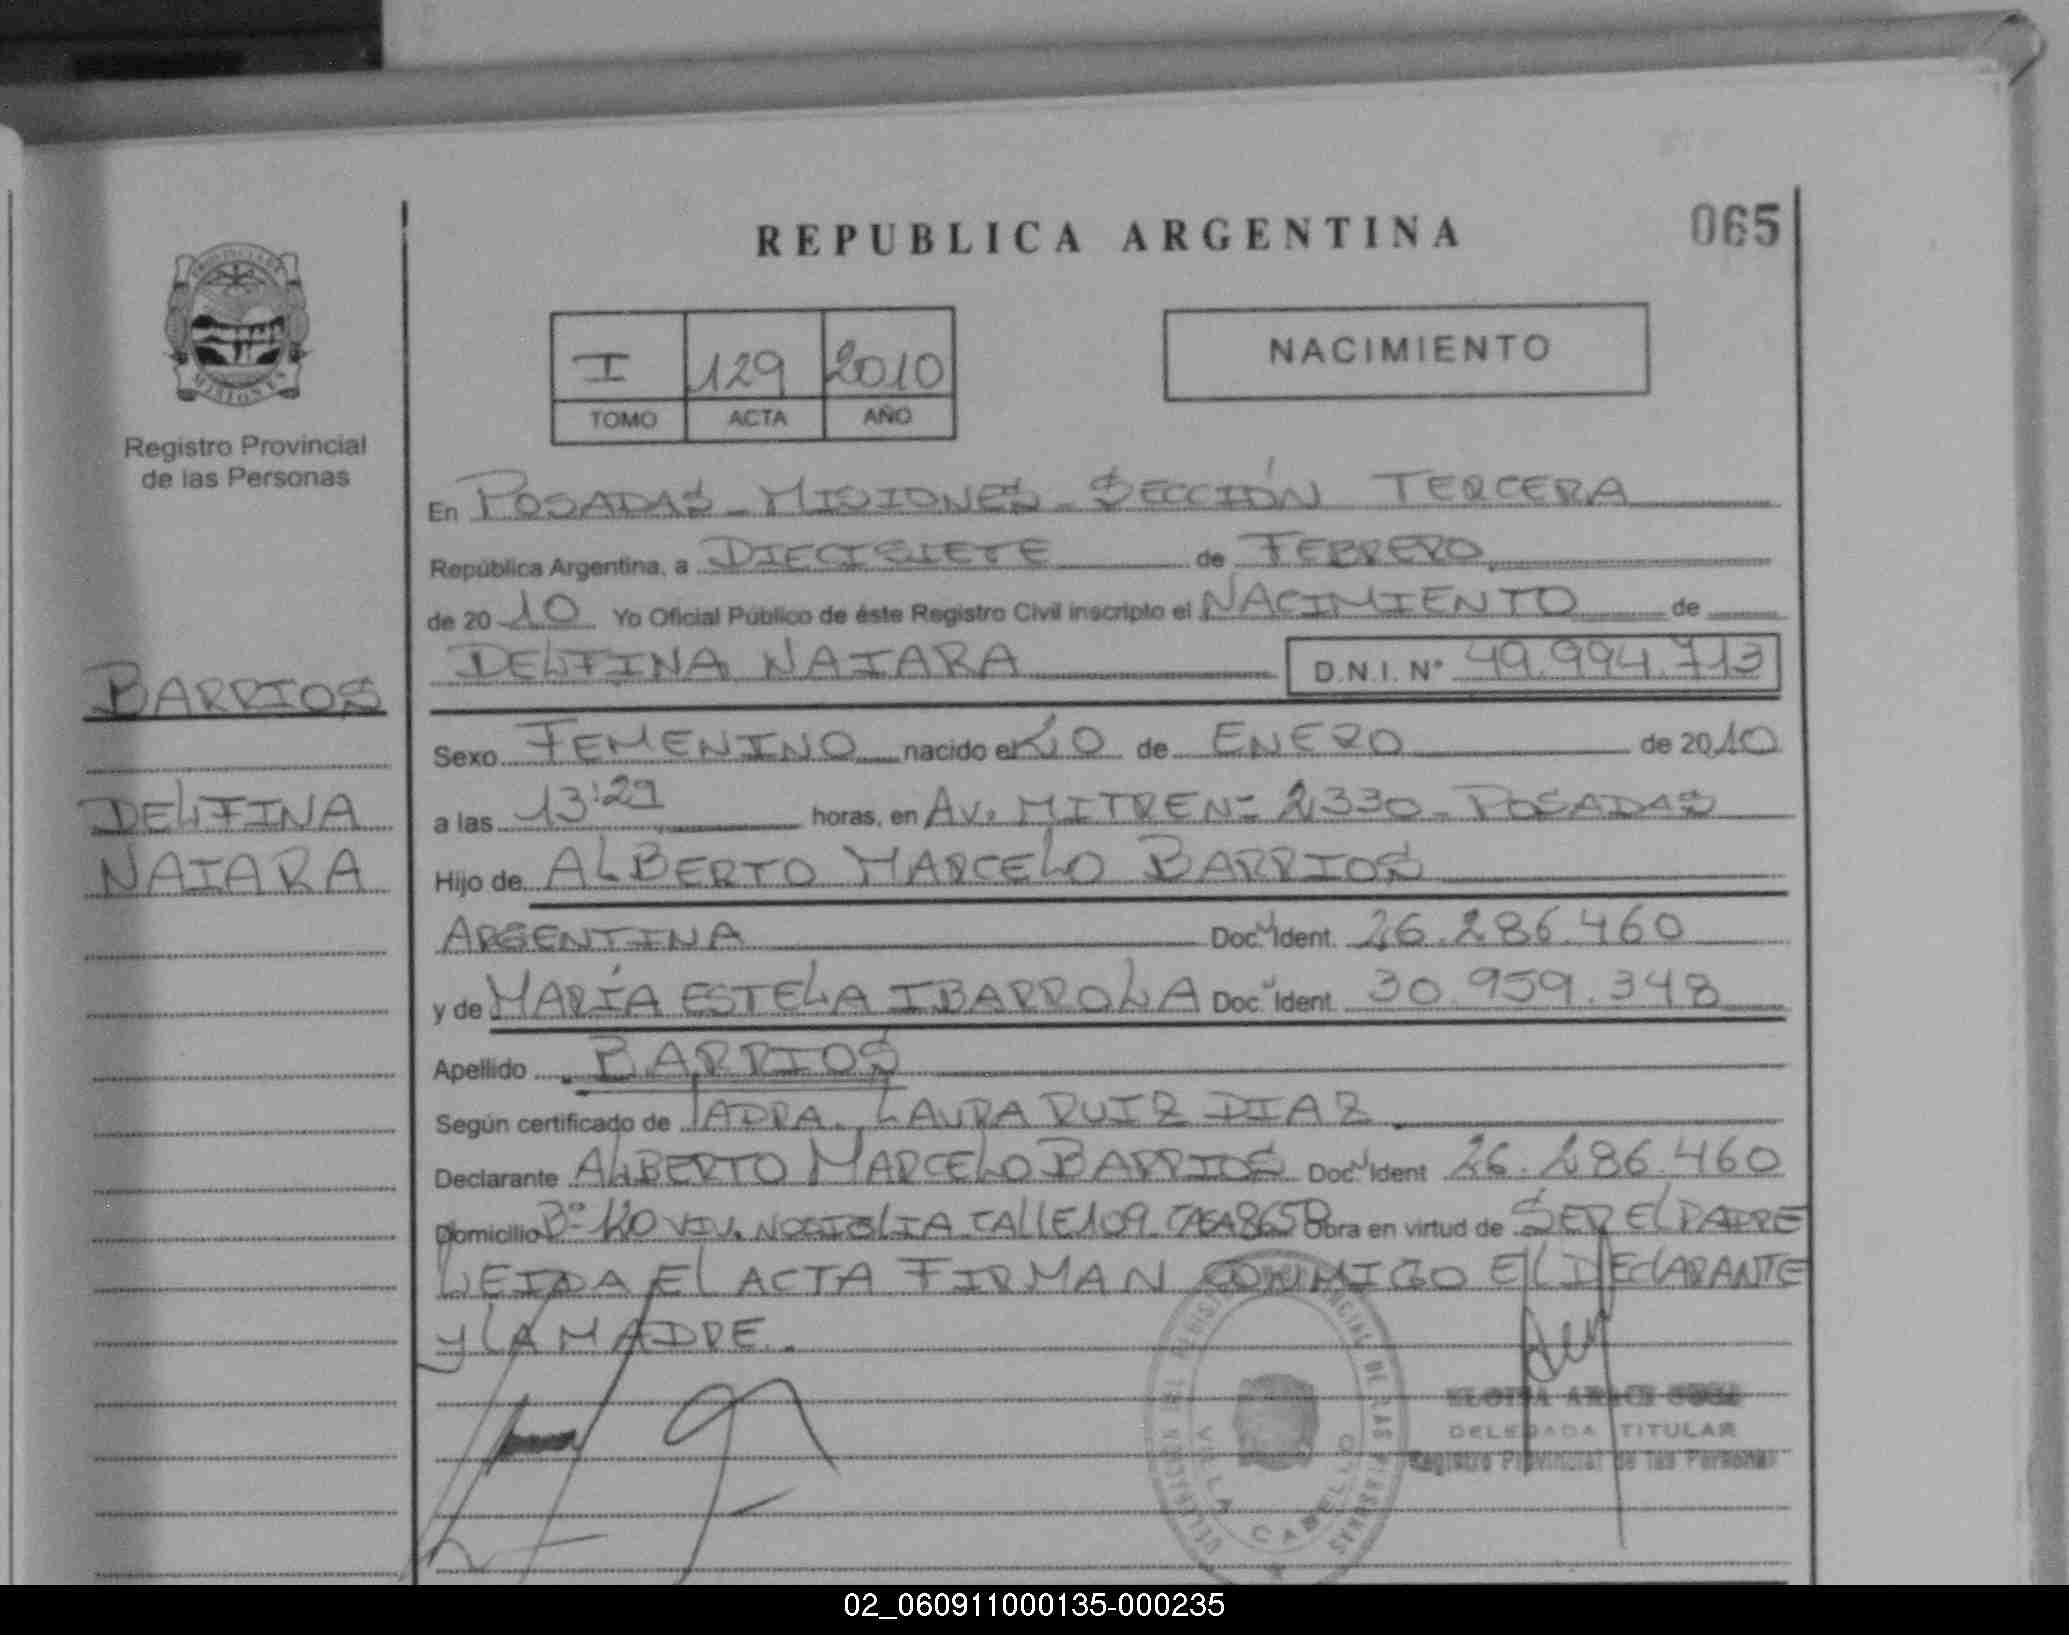 REPUBLICA ARGENTINA
065
PROVINCIA DE
MISIONES
Registro Provincial
de las Personas
I 129 2010
TOMO ACTA AÑO
NACIMIENTO
En POSADAS - MISIONES - SECCIÓN TERCERA
República Argentina, a DIECISIETE de FEBRERO
de 20 10 Yo Oficial Público de éste Registro Civil inscripto el NACIMIENTO de
DELFINA NAIARA D.N.I. N° 49.994.713
BARRIOS
DELFINA
NAIARA
Sexo FEMENINO nacido el de ENERO de 20 10
a las 13:29 horas, en AV. MITRE N= 2330 - POSADAS
Hijo de ALBERTO MARCELO BARRIOS
ARGENTINA Doc. Ident. 26.286.460
y de MARÍA ESTELA IBARROLA Doc. Ident. 30.959.348
Apellido BARRIOS
Según certificado de LAURA RUIZ DIAZ
Declarante ALBERTO MARCELO BARRIOS Doc. Ident 26.286.460
Domicilio B° VIV. CALLE 109 CASA 8658 Obra en virtud de SER EL PADRE
LEIDA EL ACTA FIRMAN CONMIGO EL DECLARANTE
Y LA MADRE.
VILLA CABELLO
DELEGADA TITULAR
Registro Provincial de las Personas
02_060911000135-000235